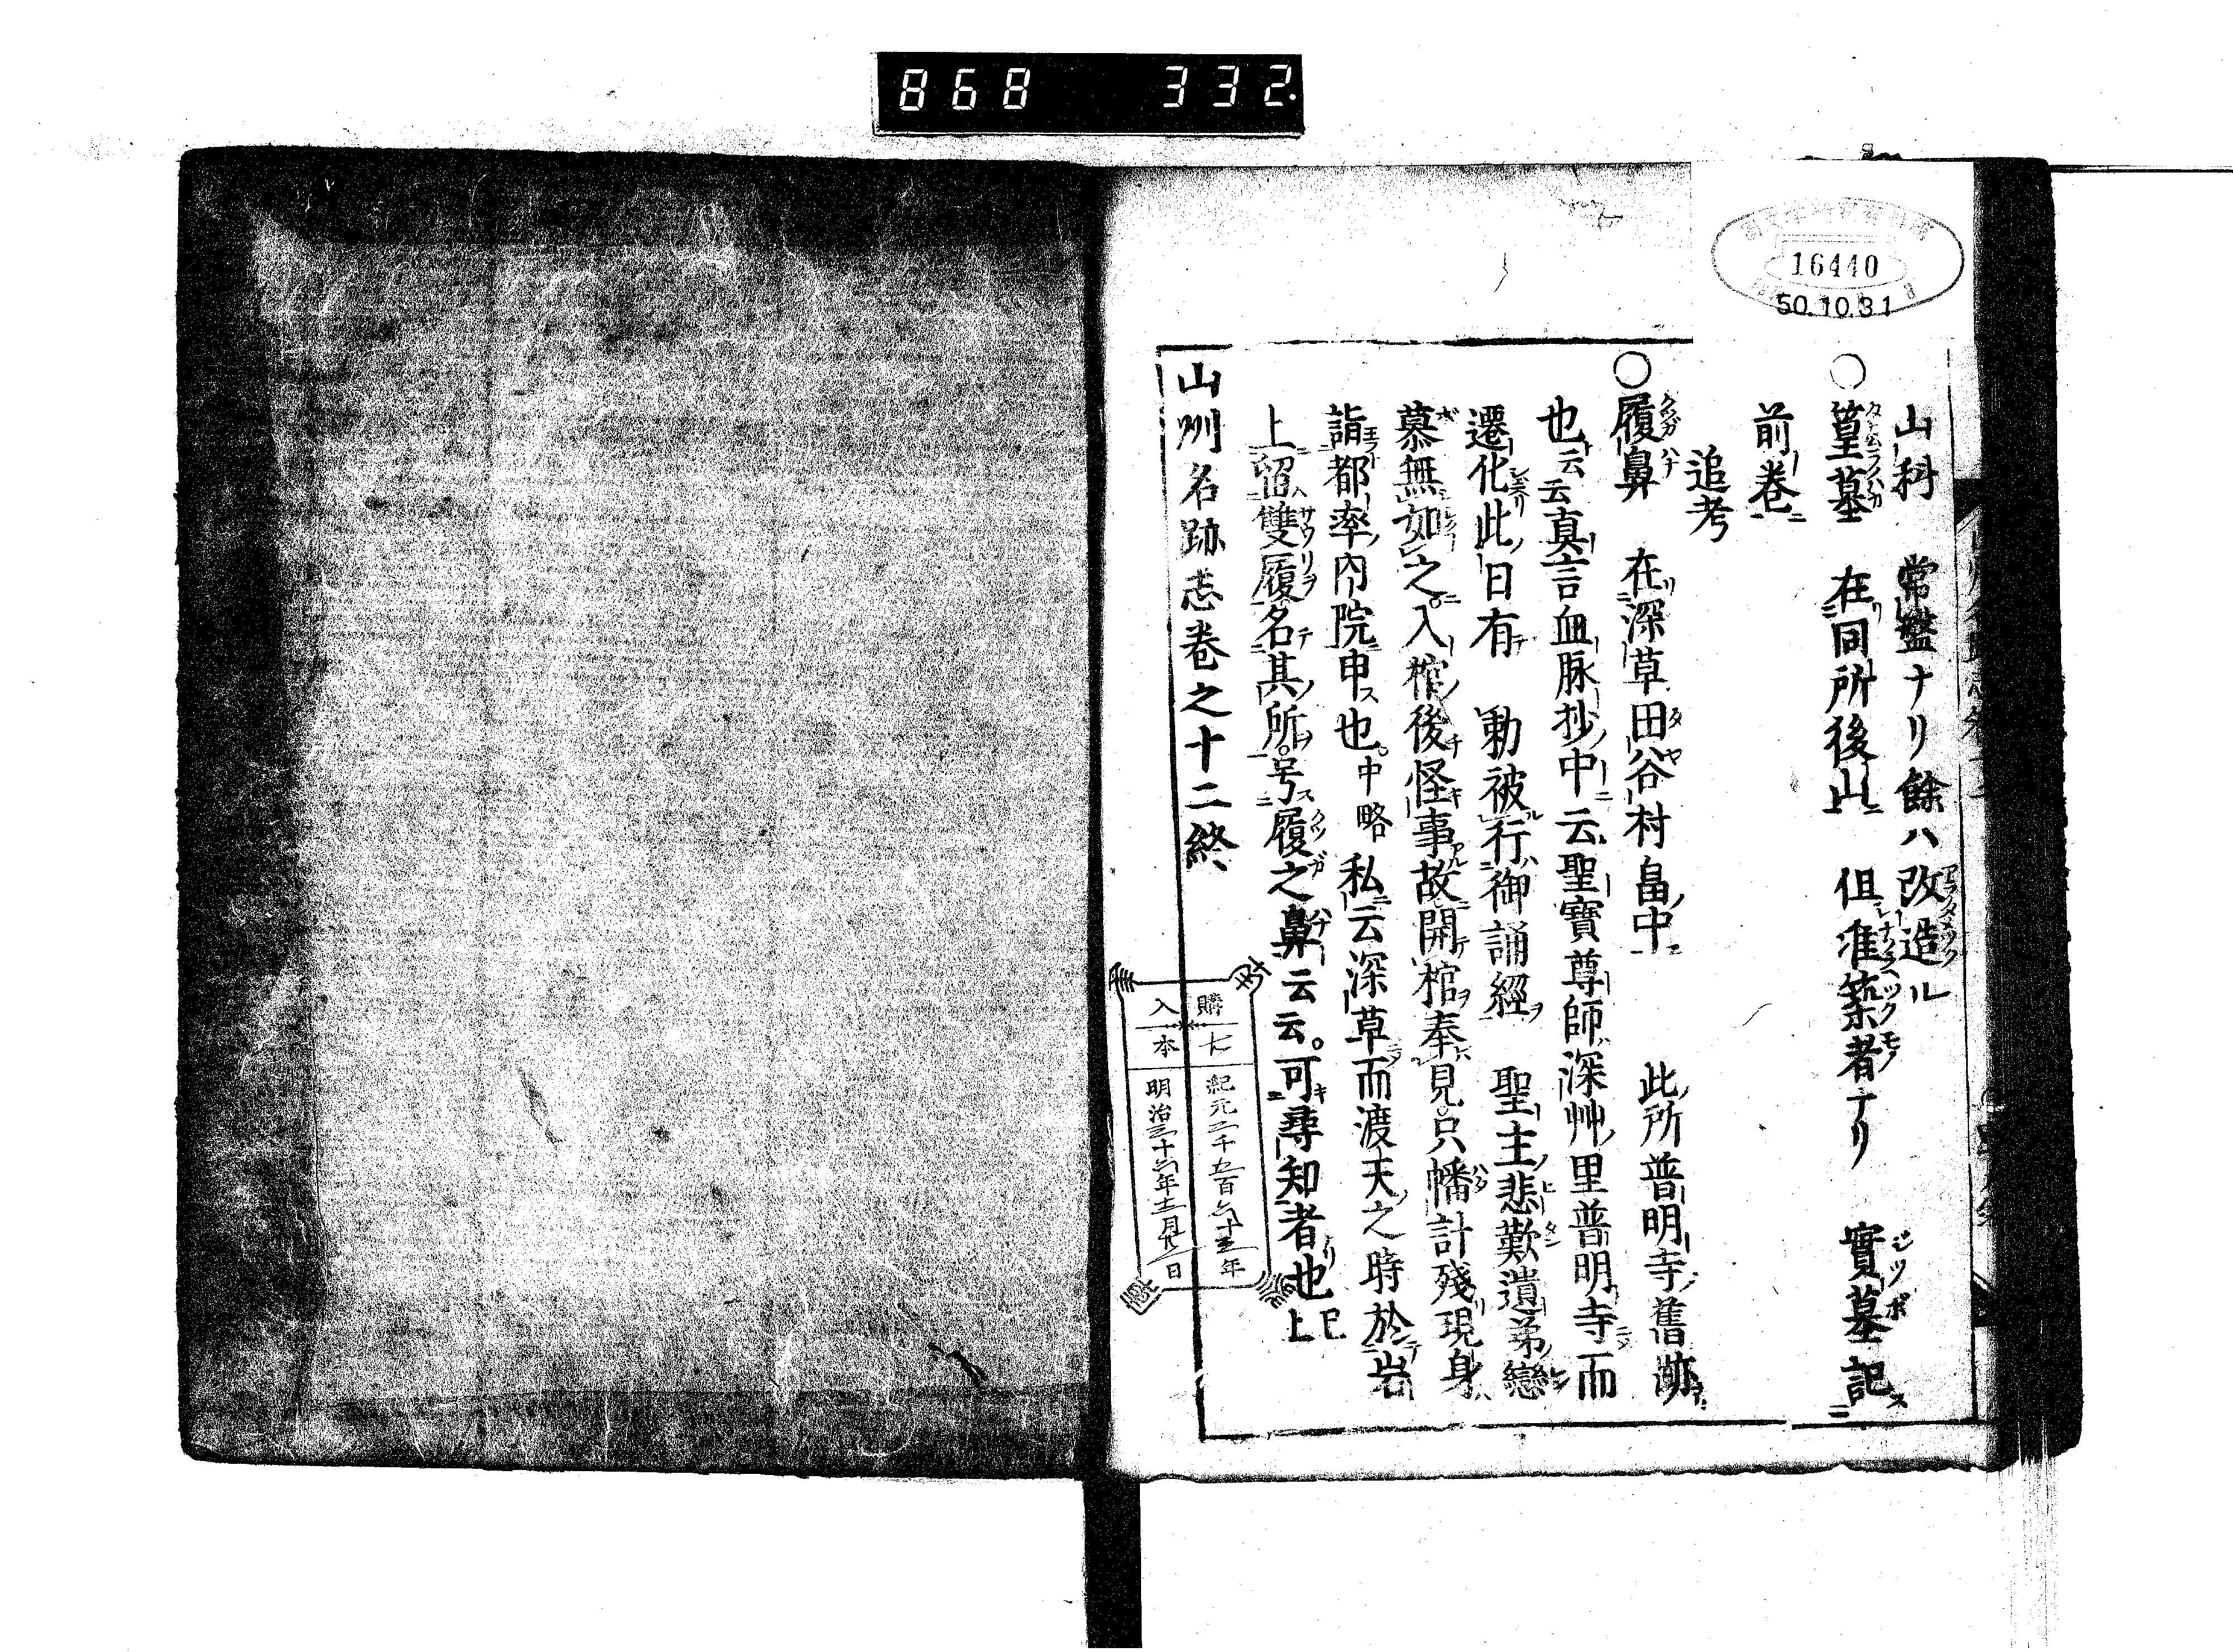 868 332.
16440
50.10.31
山科 常盤ナリ餘ハ改造ル
○篁墓 在同所後山 但准築者ナリ 實墓記
前卷
追考
○履鼻 在深草田谷村畠中 此所普明寺舊跡
也云云真言血脉抄中云聖寶尊師深艸里普明寺而
遷化此日有 勅被行御誦經 聖主悲歎遺弟戀
慕無如之入棺後怪事故開棺奉見只幡計殘現身
詣都率內院申也中略私云深草而渡天之時於岩
上留雙履名其所号履之鼻云云可尋知者也已上
山州名跡志卷之十二終
購入
本
紀元二千五百六十三年
明治三十六年十二月 日